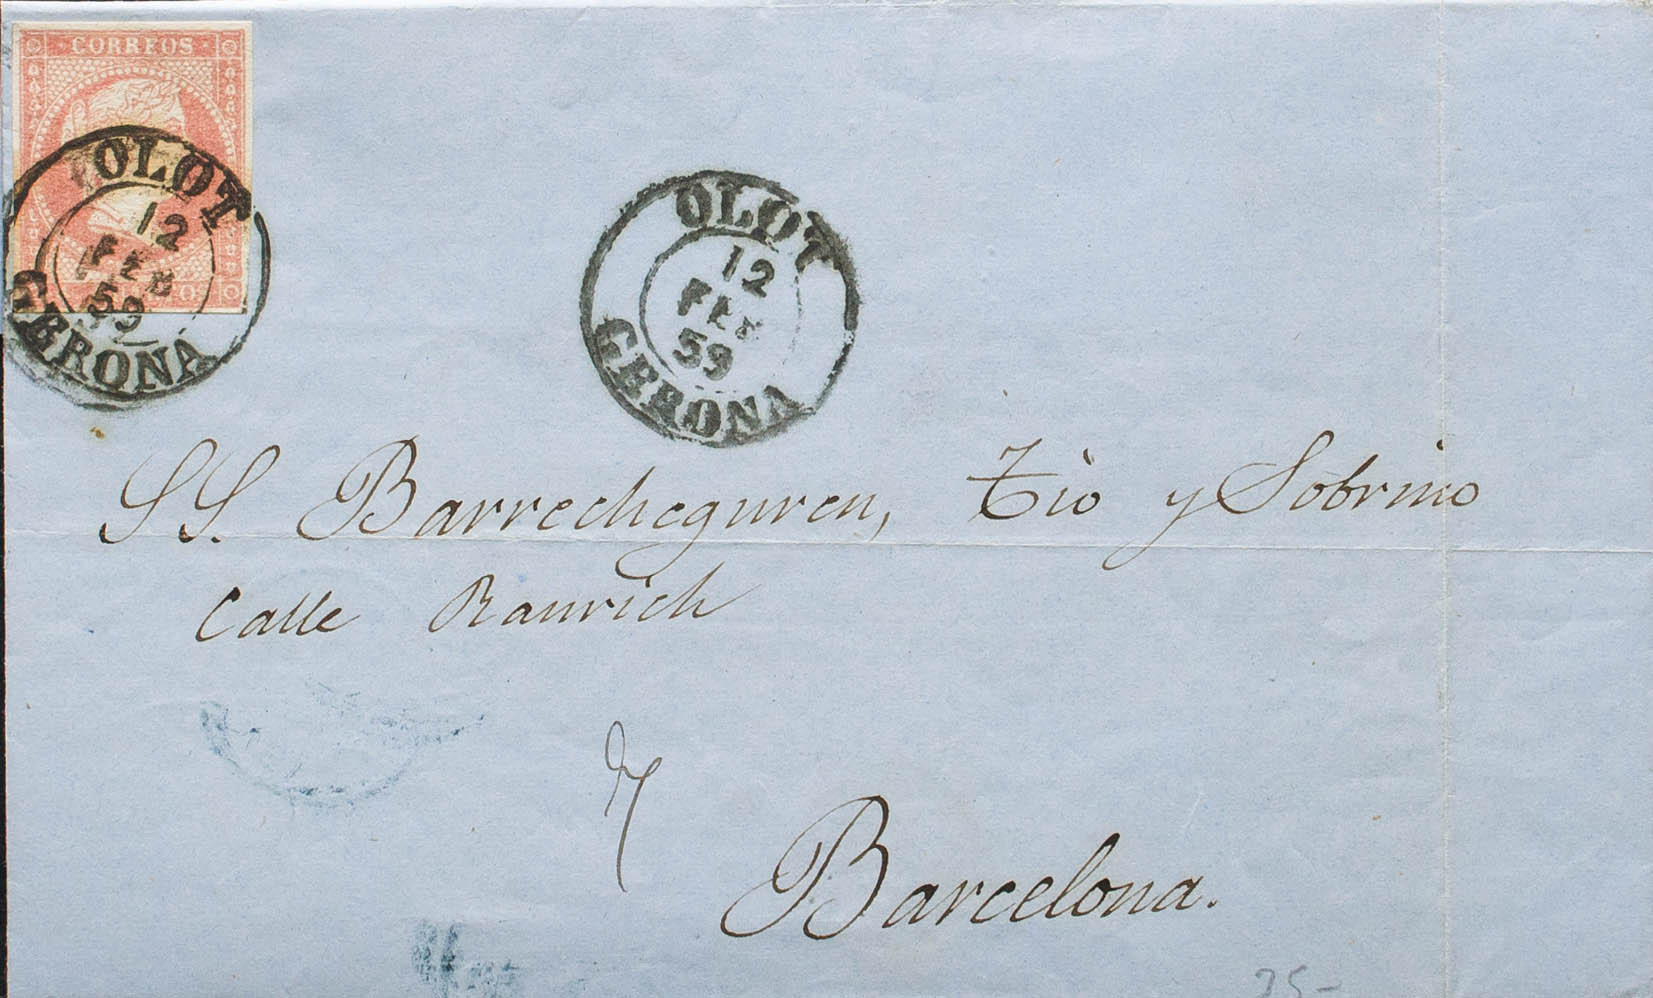 CORREOS
OLOT
12
FEB
59
GERONA
OLOT
12
FEB
59
GERONA
SS. Barrecheguren, Tio y Sobrino
Calle Raurich
7
Barcelona.
75-